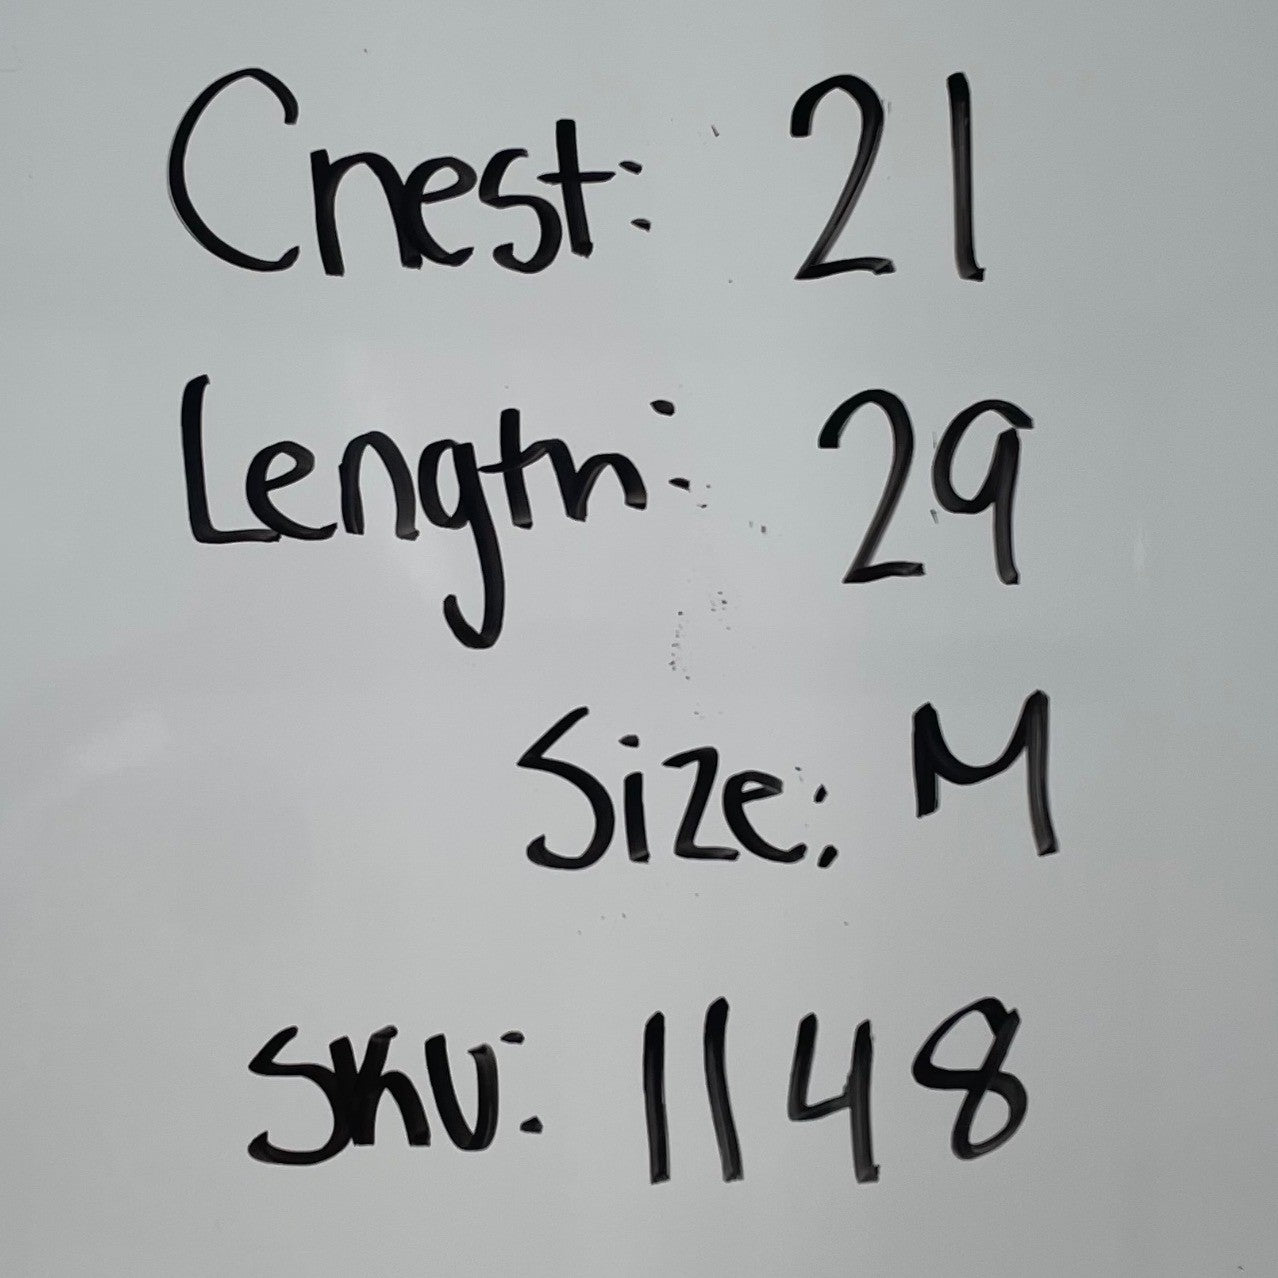 Chest: 21
Length: 29
Size: M
SKU: 1148